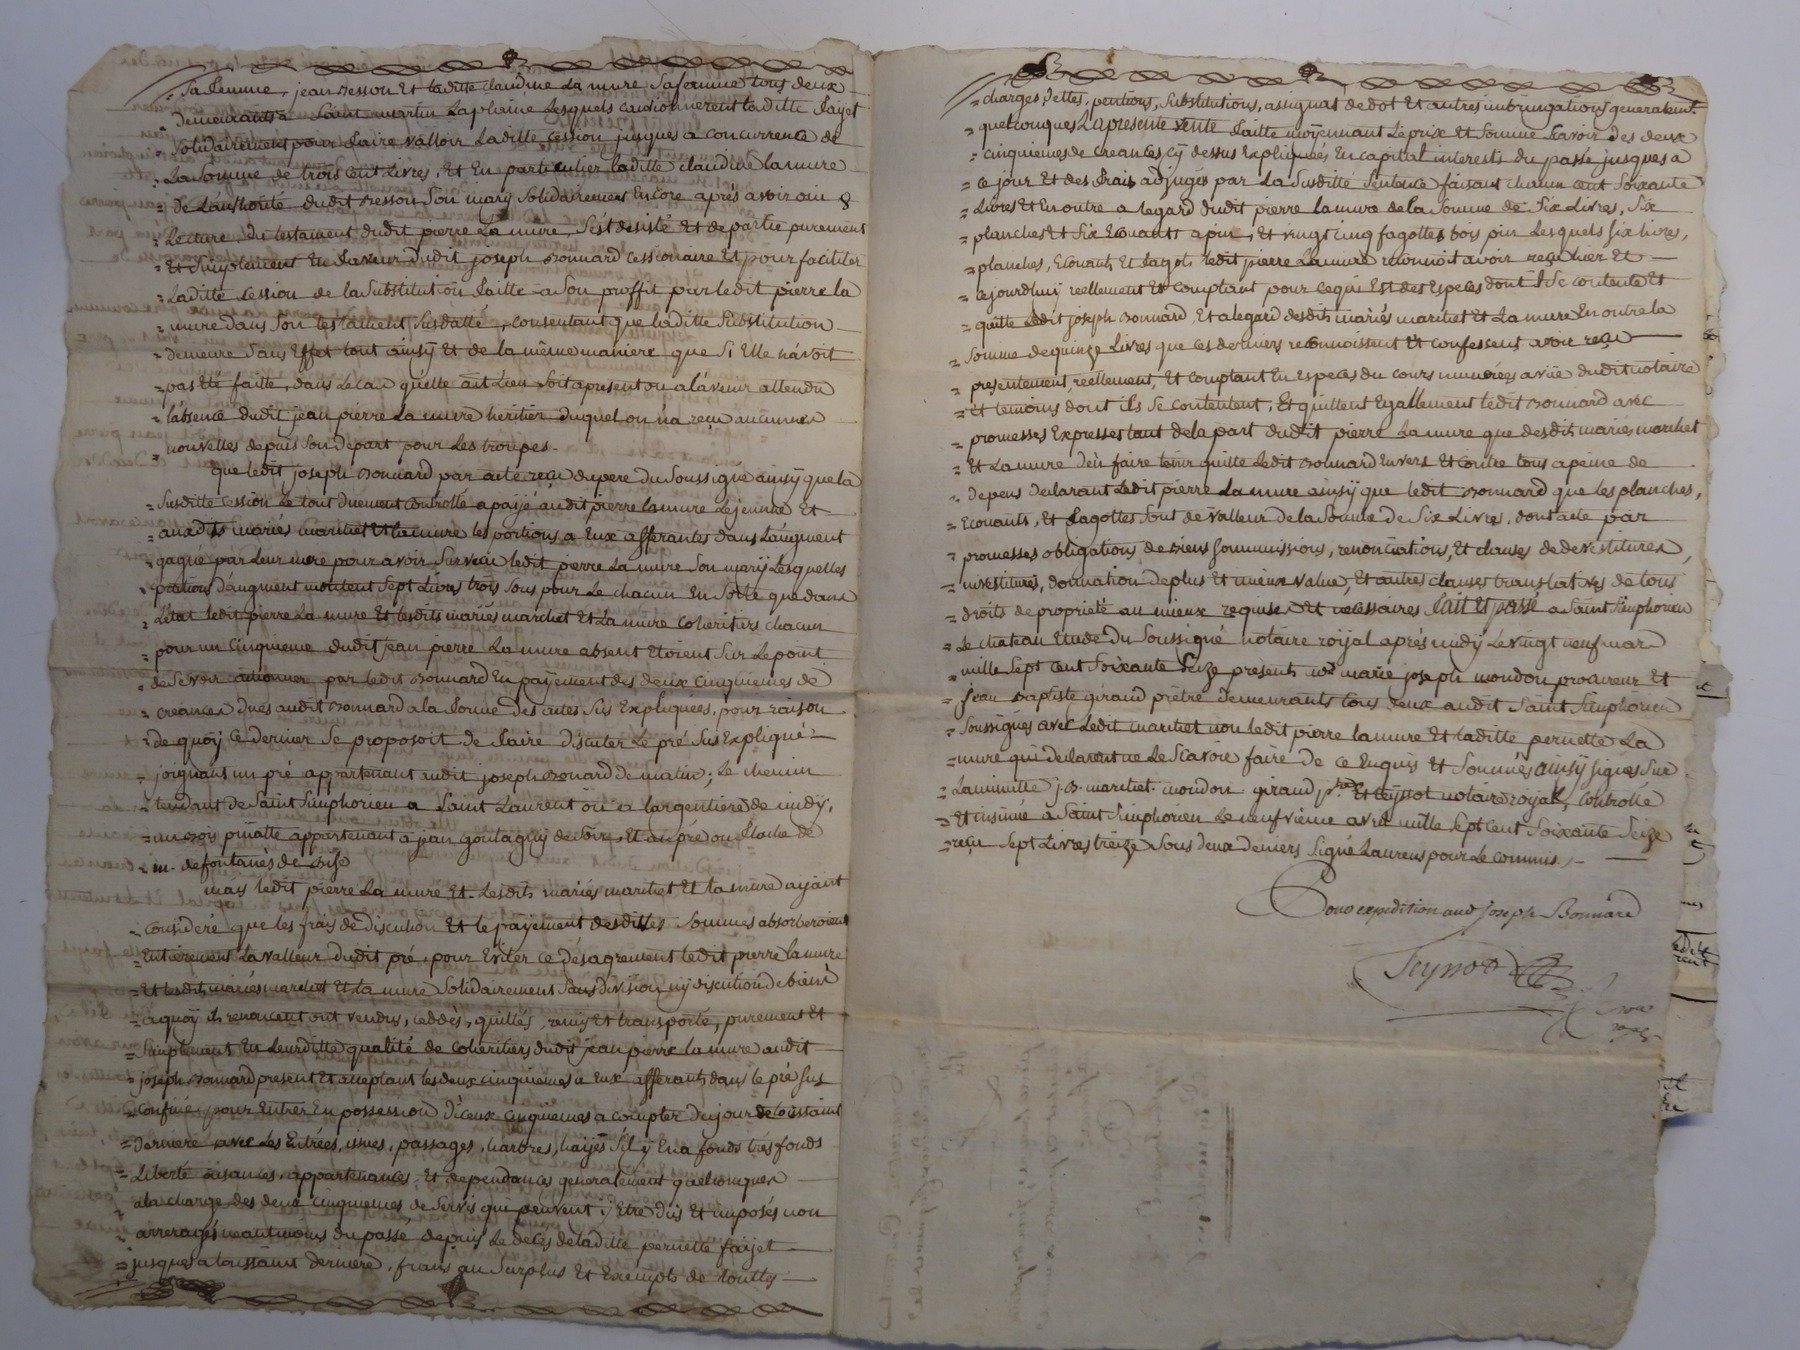 sa femme, jean Besson Et laditte claudine La mure sa femme tous deux
demeurants a Saint martin Laplaine Lesquels cautionnerent laditte fayet
solidairement pour faire valloir Laditte cession jusques a concurrence de
La Somme de trois cent Livres, Et En particulier laditte claudine lamure
de L'authorité dudit Besson Son mary Solidairement Encore après avoir oui
Lecture du testament dudit pierre La mure s'est desisté Et departie purement
Et Simplement En faveur dudit joseph Bonnard cessionaire Et pour faciliter
Laditte cession de la Substitution faitte a Son proffit par ledit pierre la
mure dans Son testament Susdatté, consentant que laditte Substitution
demeure Sans Effet tout ainsy Et de la même maniere que Si Elle n'avoit
pas Eté faitte, dans le cas quelle ait Lieu soit apresent ou a l'avenir attendu
l'absence dudit jean pierre La mure heritier duquel on n'a reçu aucunnes
nouvelles depuis Son depart pour Les troupes.
que ledit joseph Bonnard par acte reçu du pere du Soussigné ainsy que la
Susditte cession Le tout duement controllé a payé audit pierre la mure Lejeunne Et
auxdits mariés marchet Et la mure les portions a Eux afferantes dans L'augment
gagné par Leur mere pour avoir Survécu ledit pierre La mure Son mary Lesquelles
portions d'augment montent Sept Livres trois Sous pour Le chacun En Sorte que dans
L'état ledit pierre La mure Et lesdits mariés marchet Et La mure coheritiers chacun
pour un cinquieme dudit jean pierre La mure absent Etoient Sur Le point
de Se voir actionner par ledit Bonnard En payement des deux cinquiemes de
creances dues audit Bonnard a la forme des actes Sus Expliquées, pour raison
de quoy ce dernier Se proposoit de faire discuter Le pré Sus Expliqué
joignant un pré appartenant audit joseph Bonard de matin; Le chemin
tendant de Saint Simphorien a Saint Laurent ou a largentiere de midy,
un Bois pinatte appartenant a jean goutagny de Soire, Et au pré ou flache de
m. de fontanès de Bise
mais ledit pierre La mure Et Lesdits mariés marchet Et la mure ayant
consideré que les frais de discution Et le payement desdittes Sommes absorberoient
Entierement La valleur dudit pré, pour Eviter ce désagrement ledit pierre la mure
Et lesdits mariés marchet Et la mure Solidairement Sans division ny discution de biens
a quoy ils renoncent ont vendus, ceddés, quittés, remis Et transporté, purement Et
Simplement En Leurditte qualité de coheritiers dudit jean pierre la mure audit
joseph Bonnard present Et acceptant les deux cinquiemes a Eux afferants dans le pré Sus
confiné, pour Entrer En possession d'iceux cinquiemes a compter du jour de toussaint
derniere avec Les Entrées, issues, passages, harbres, hayes S'il y En a fonds tresfonds
Liberté aisances, appartenances, Et dependances generalement quelconques
a la charge des deux cinquiemes de Servis que peuvent y Etre dûs Et imposés non
arreragés neantmoins du passé depuis Le decés de laditte pernette fayet
jusques a toussaint derniere, francs au Surplus Et Exempts de toutes
charges, dettes, pentions, Substitutions, assignat de dot Et autres imbringations generalement
quelconques La presente vente faitte moyennant Le prix Et Somme Scavoir des deux
cinquiemes de creances cy dessus Expliquées En capital interests du passé jusques a
ce jour Et des frais adjugés par La Susditte Sentence faisant chacun cent Soixante
Livres Et En outre a legard dudit pierre la mure de la Somme de Six Livres, Six
planches Et Six Ecouants a pin, Et vingt cinq fagottes bois pin Lesquels six livres,
planches, Ecouants Et fagots ledit pierre La mure reconnoit avoir reçu hier Et
cejourdhuy reellement Et comptant pour ce qui Est des Especes dont il Se contente Et
quitte ledit joseph Bonnard, Et a legard desdits mariés marchet Et La mure En outre la
Somme de quinze Livres que ces derniers reconnoissent Et confessent avoir reçu
presentement, reellement, Et comptant En especes du cours numérées a vüe dudit notaire
Et temoins dont ils Se contentent, Et quittent Egallement ledit Bonnard avec
promesses Expresses tant de la part dudit pierre La mure que desdits mariés marchet
Et La mure d'En faire tenir quitte Ledit Bonnard Envers Et contre tous apeine de
depens declarant Ledit pierre La mure ainsy que ledit Bonnard que les planches,
Ecouants, Et fagottes Sont de valleur de la Somme de Six Livres, dont acte par
promesses obligations de Biens Soummissions, renonciations, Et clauses de devestitures,
investitures, donnation de plus Et mieux value, Et autres clauses translatives de tous
droits de proprieté au mieux requises Et necessaires fait Et passé a Saint Simphorien
Le chateau Etude du Soussigné notaire royal après midy Le vingt neuf mars
mille Sept cent Soixante Seize presents me marie joseph moudon procureur Et
jean Baptiste giraud prêtre demeurants tous deux audit Saint Simphorien
Soussignés avec Ledit marchet non ledit pierre la mure Et laditte pernette La
mure qui declarent ne Le Scavoir faire de ce Enquis Et Sommés ainsy signés Sur
La minutte j. B. marchet. moudon giraud ptre Et teynot notaire royal, controllé
Et insinué a Saint Simphorien Le neufvieme avril mille Sept cent Soixante Seize
reçu Sept Livres treize Sous deux deniers Signé Laurens pour Le commis.
Pour expedition aud joseph Bonnard